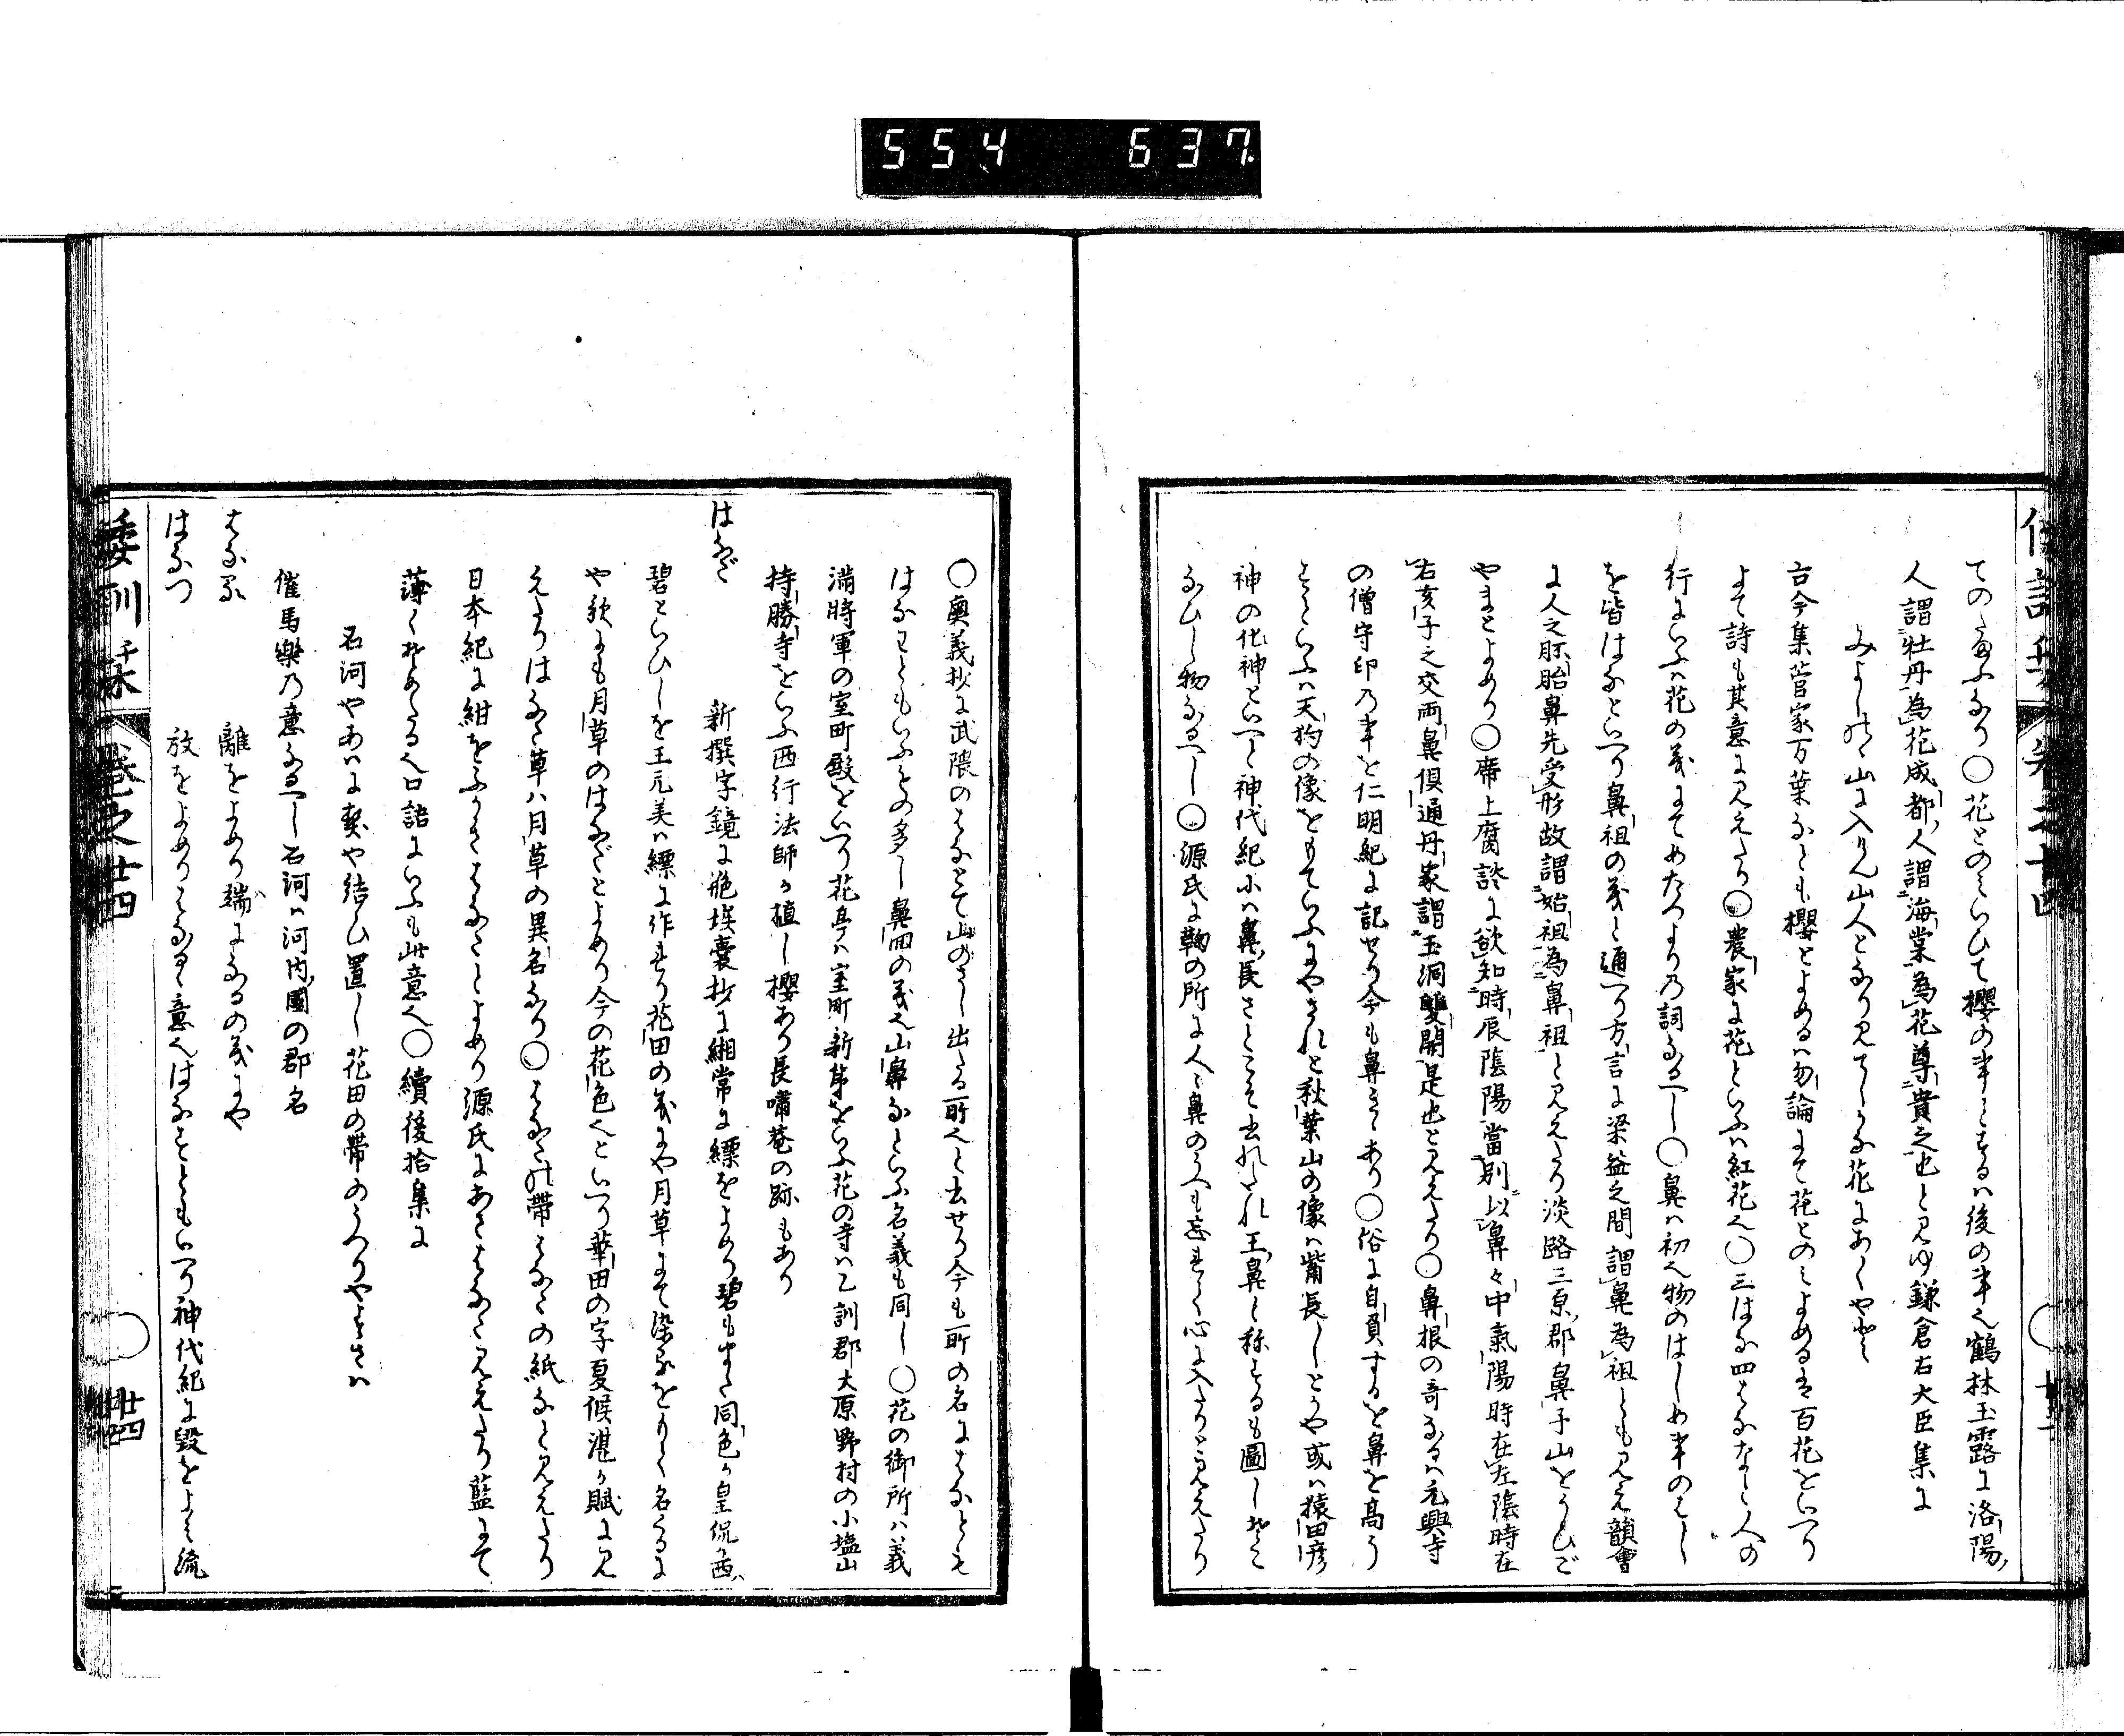 554 637
てのたまふなり○花とのミいひて櫻の事とするハ後の事也鶴林玉露に洛陽
人謂牡丹為花成都人謂海棠為花尊貴之也と見ゆ鎌倉右大臣集に
みよしのゝ山に入けん山人となり見てしかな花にあくやと
古今集菅家万葉なとも櫻とよめるハ勿論にて花とのミよめるは百花をいへり
よて詩も其意に見えたり○農家に花といふハ紅花也○三はな四はななと人の
行にいふハ花の義にてめたつよりの詞なるへし○鼻ハ初也物のはしめ事のはし
を皆はなといへり鼻祖の義と通へり方言に梁益之間謂鼻為祖とも見え韻會
に人之胚胎鼻先受形故謂始祖為鼻祖と見えたり淡路三原郡鼻子山をうひご
やまとよめり○席上腐談に欲知時辰陰陽當別以鼻々中氣陽時在左陰時在
右亥子之交両鼻倶通丹家謂玉洞雙開是也と見えたり○鼻根の哥なるハ元興寺
の僧守印の事を仁明紀に記せり今も鼻きゝあり○俗に自負するを鼻を高う
するといふハ天狗の像をもていふにやされと秋葉山の像ハ觜長しとかや或ハ猿田彦
神の化神といへと神代紀にハ鼻長さとこそ書れたれ王鼻と称するも圖しそこ
なひし物なるへし○源氏に鞠の所に人々鼻のうへも忘れて心に入たりと見えたり
○奥義抄に武隈のはなとて山のさし出たる所也と書せり今も所の名にはなとも
はなわともいふもの多し鼻囬の義也山鼻なといふ名義も同し○花の御所ハ義
満將軍の室町殿をいへり花亭ハ室町新第をいふ花の寺ハ乙訓郡大原野村の小塩山
持勝寺をいふ西行法師か植し櫻あり長嘯菴の跡もあり
はなだ 新撰字鏡に𦫿埃嚢抄に緗常に縹をよめり碧もまた同色か皇侃か西
碧といひしを王元美ハ縹に作れり花田の義にや月草にて染るをもて名くるに
や歌にも月草のはなだとよめり今の花色也といへり華田の字夏候湛か賦に見
えたりはなた草ハ月草の異名なり○はなたの帯はなたの紙なと見えたり
日本紀に紺をふかきはなたとよめり源氏にあさはなた見えたり藍にて
薄くそめたる也口語にいふも此意也○續後拾集に
石河やあハに契や結ひ置し花田の帯のうつりやすさハ
催馬樂の意なるへし石河ハ河内國の郡名
はなる 離をよめり端になるの義にや
はなつ 放をよめりはなるゝ意也はなすともいへり神代紀に毀をよミ流
倭訓栞 巻之廿四 廿四